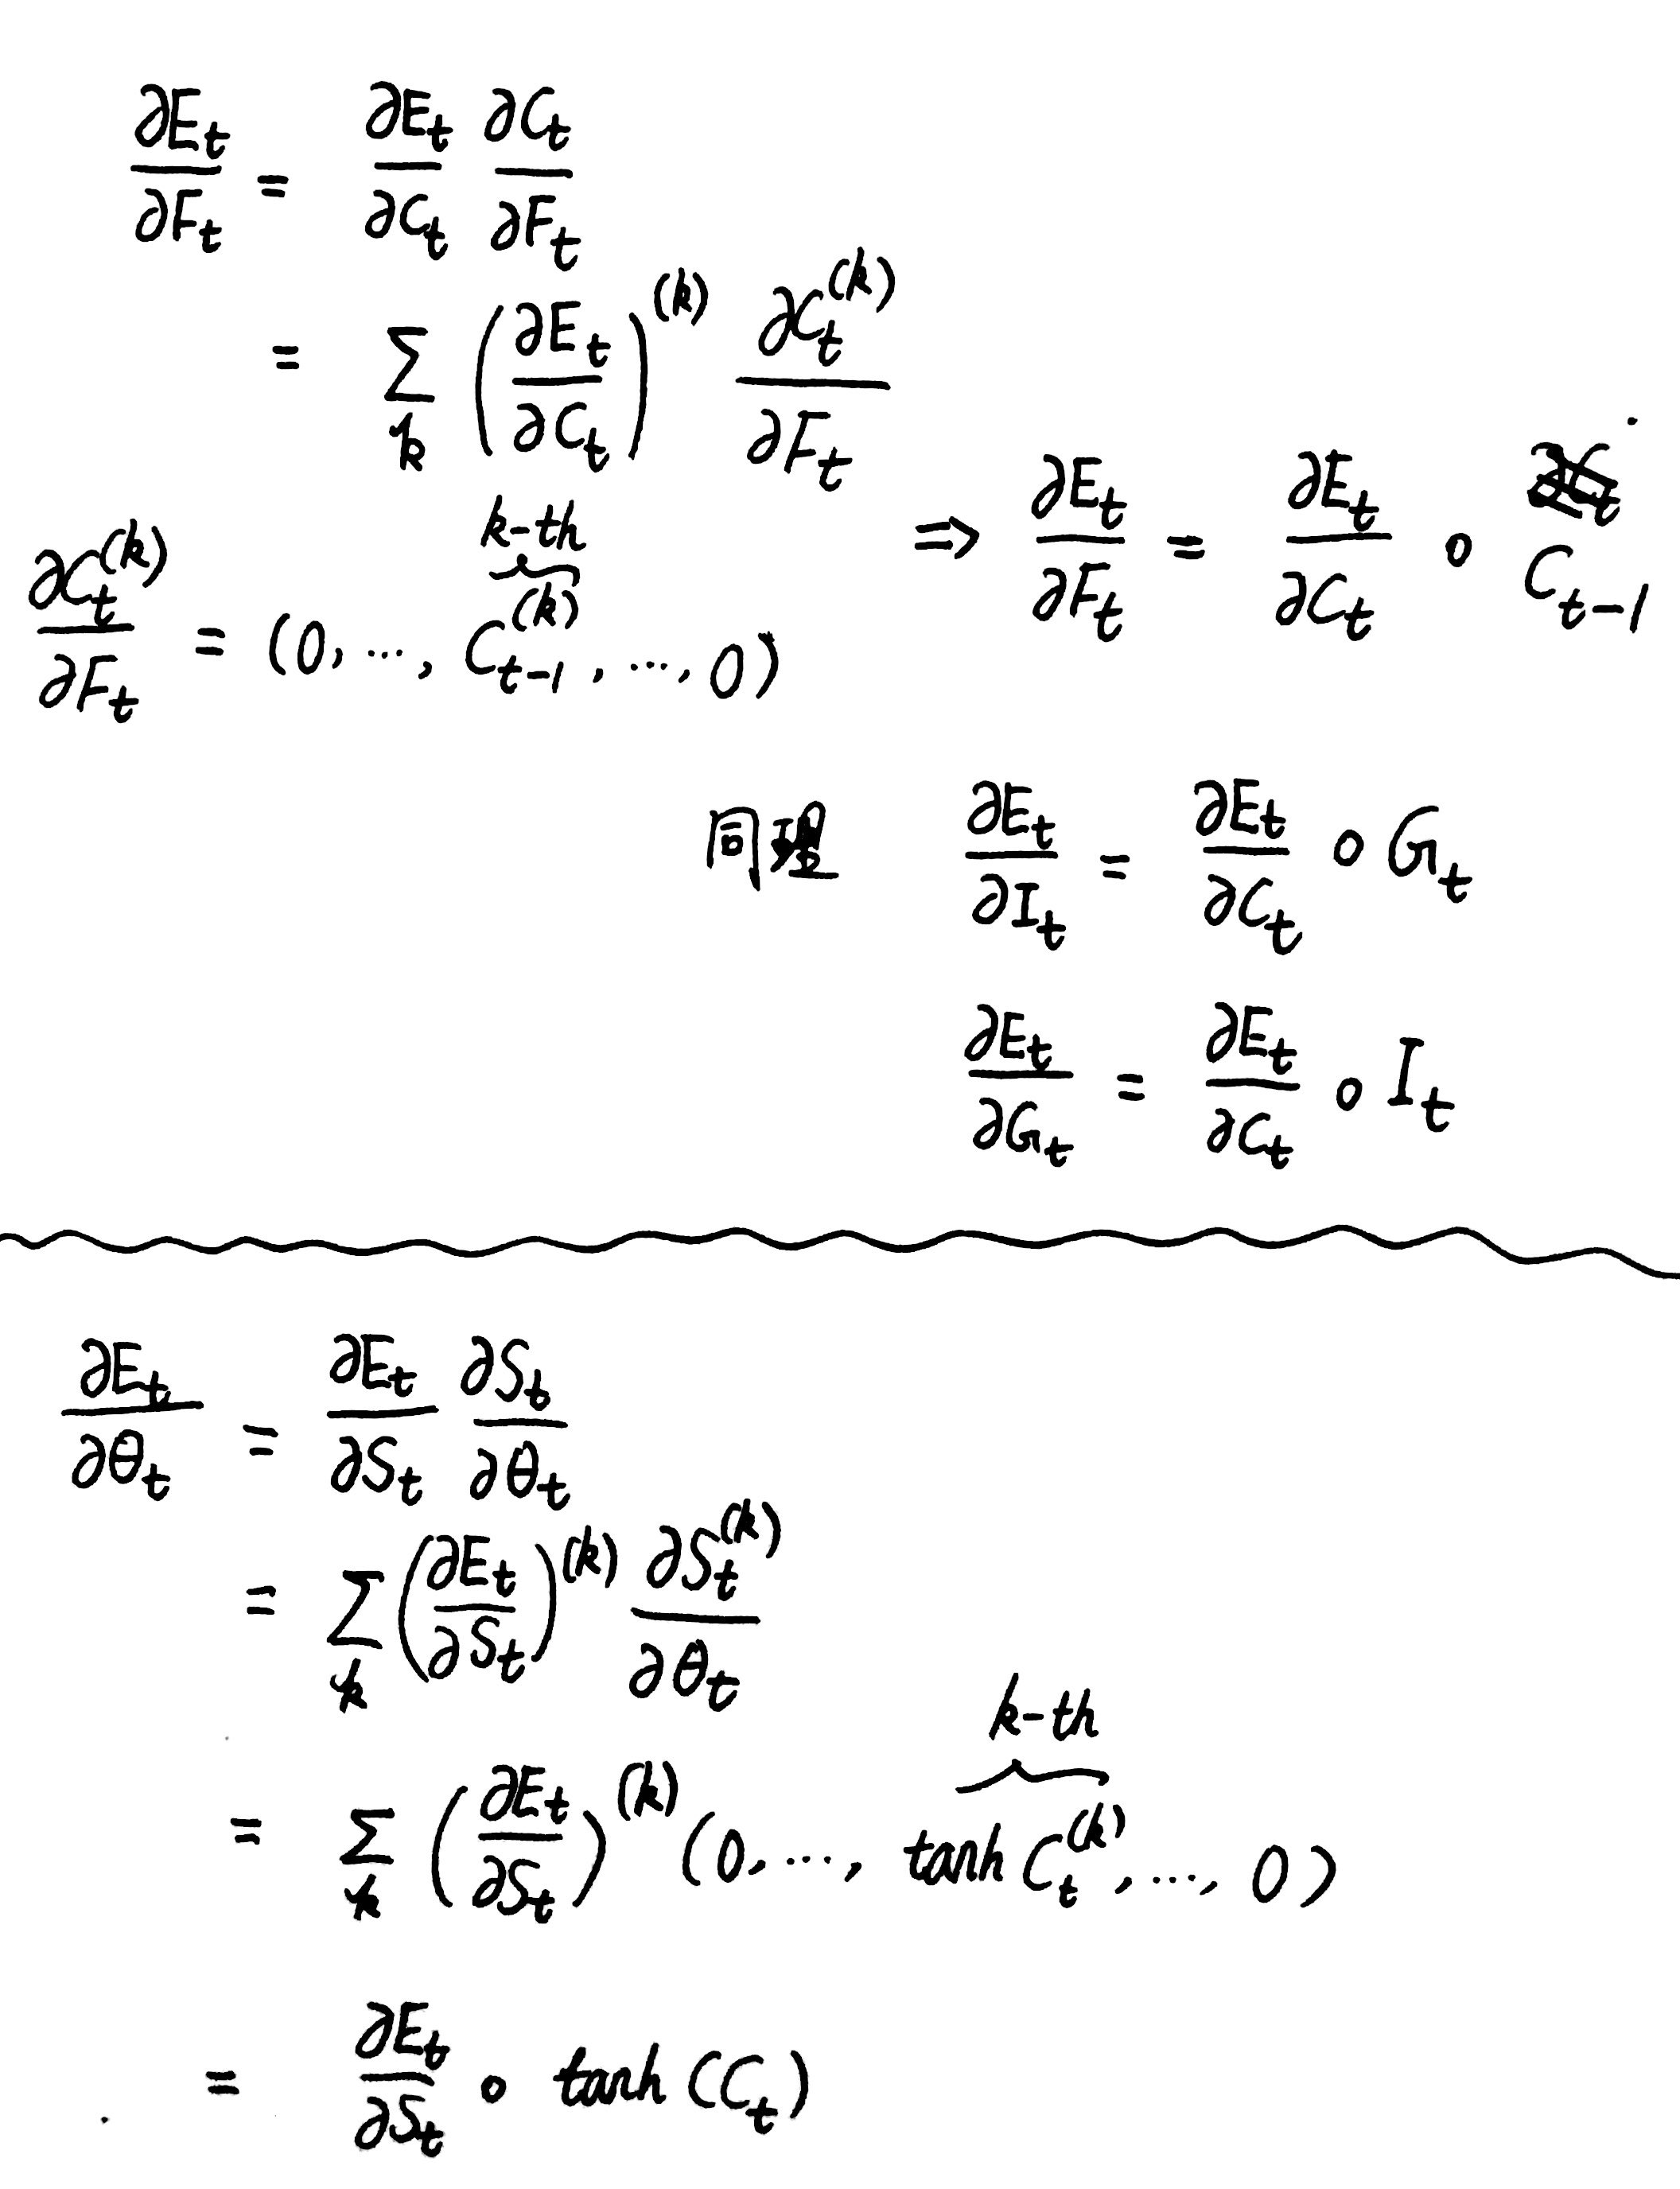 ∂E_t/∂F_t = ∂E_t/∂C_t ∂C_t/∂F_t
= Σ_k (∂E_t/∂C_t)^(k) ∂C_t^(k)/∂F_t
k-th
∂C_t^(k)/∂F_t = (0, ..., C_{t-1}^(k), ..., 0)
⇒ ∂E_t/∂F_t = ∂E_t/∂C_t ∘ C_{t-1}
同理 ∂E_t/∂I_t = ∂E_t/∂C_t ∘ G_t
∂E_t/∂G_t = ∂E_t/∂C_t ∘ I_t
∂E_t/∂θ_t = ∂E_t/∂S_t ∂S_t/∂θ_t
= Σ_k (∂E_t/∂S_t)^(k) ∂S_t^(k)/∂θ_t
k-th
= Σ_k (∂E_t/∂S_t)^(k) (0, ..., tanh C_t^(k), ..., 0)
= ∂E_t/∂S_t ∘ tanh (C_t)